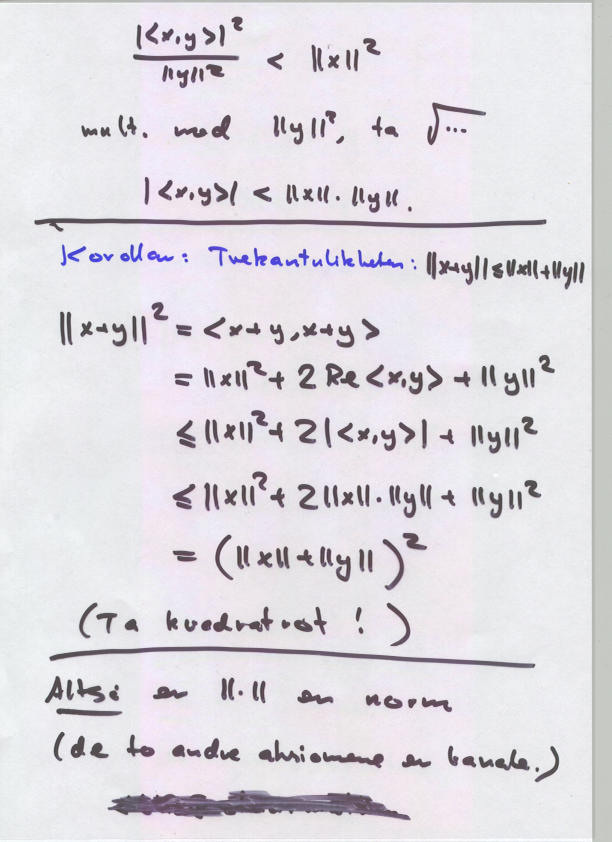 |<x,y>|² / ||y||² < ||x||²
mult. med ||y||², ta √...
|<x,y>| < ||x||·||y||.
Korollar: Trekantulikheten: ||x+y|| ≤ ||x||+||y||
||x+y||² = <x+y, x+y>
= ||x||² + 2 Re<x,y> + ||y||²
≤ ||x||² + 2|<x,y>| + ||y||²
≤ ||x||² + 2||x||·||y|| + ||y||²
= (||x||+||y||)²
(Ta kvadratrot!)
Altså er ||·|| en norm
(de to andre aksiomene er banale.)